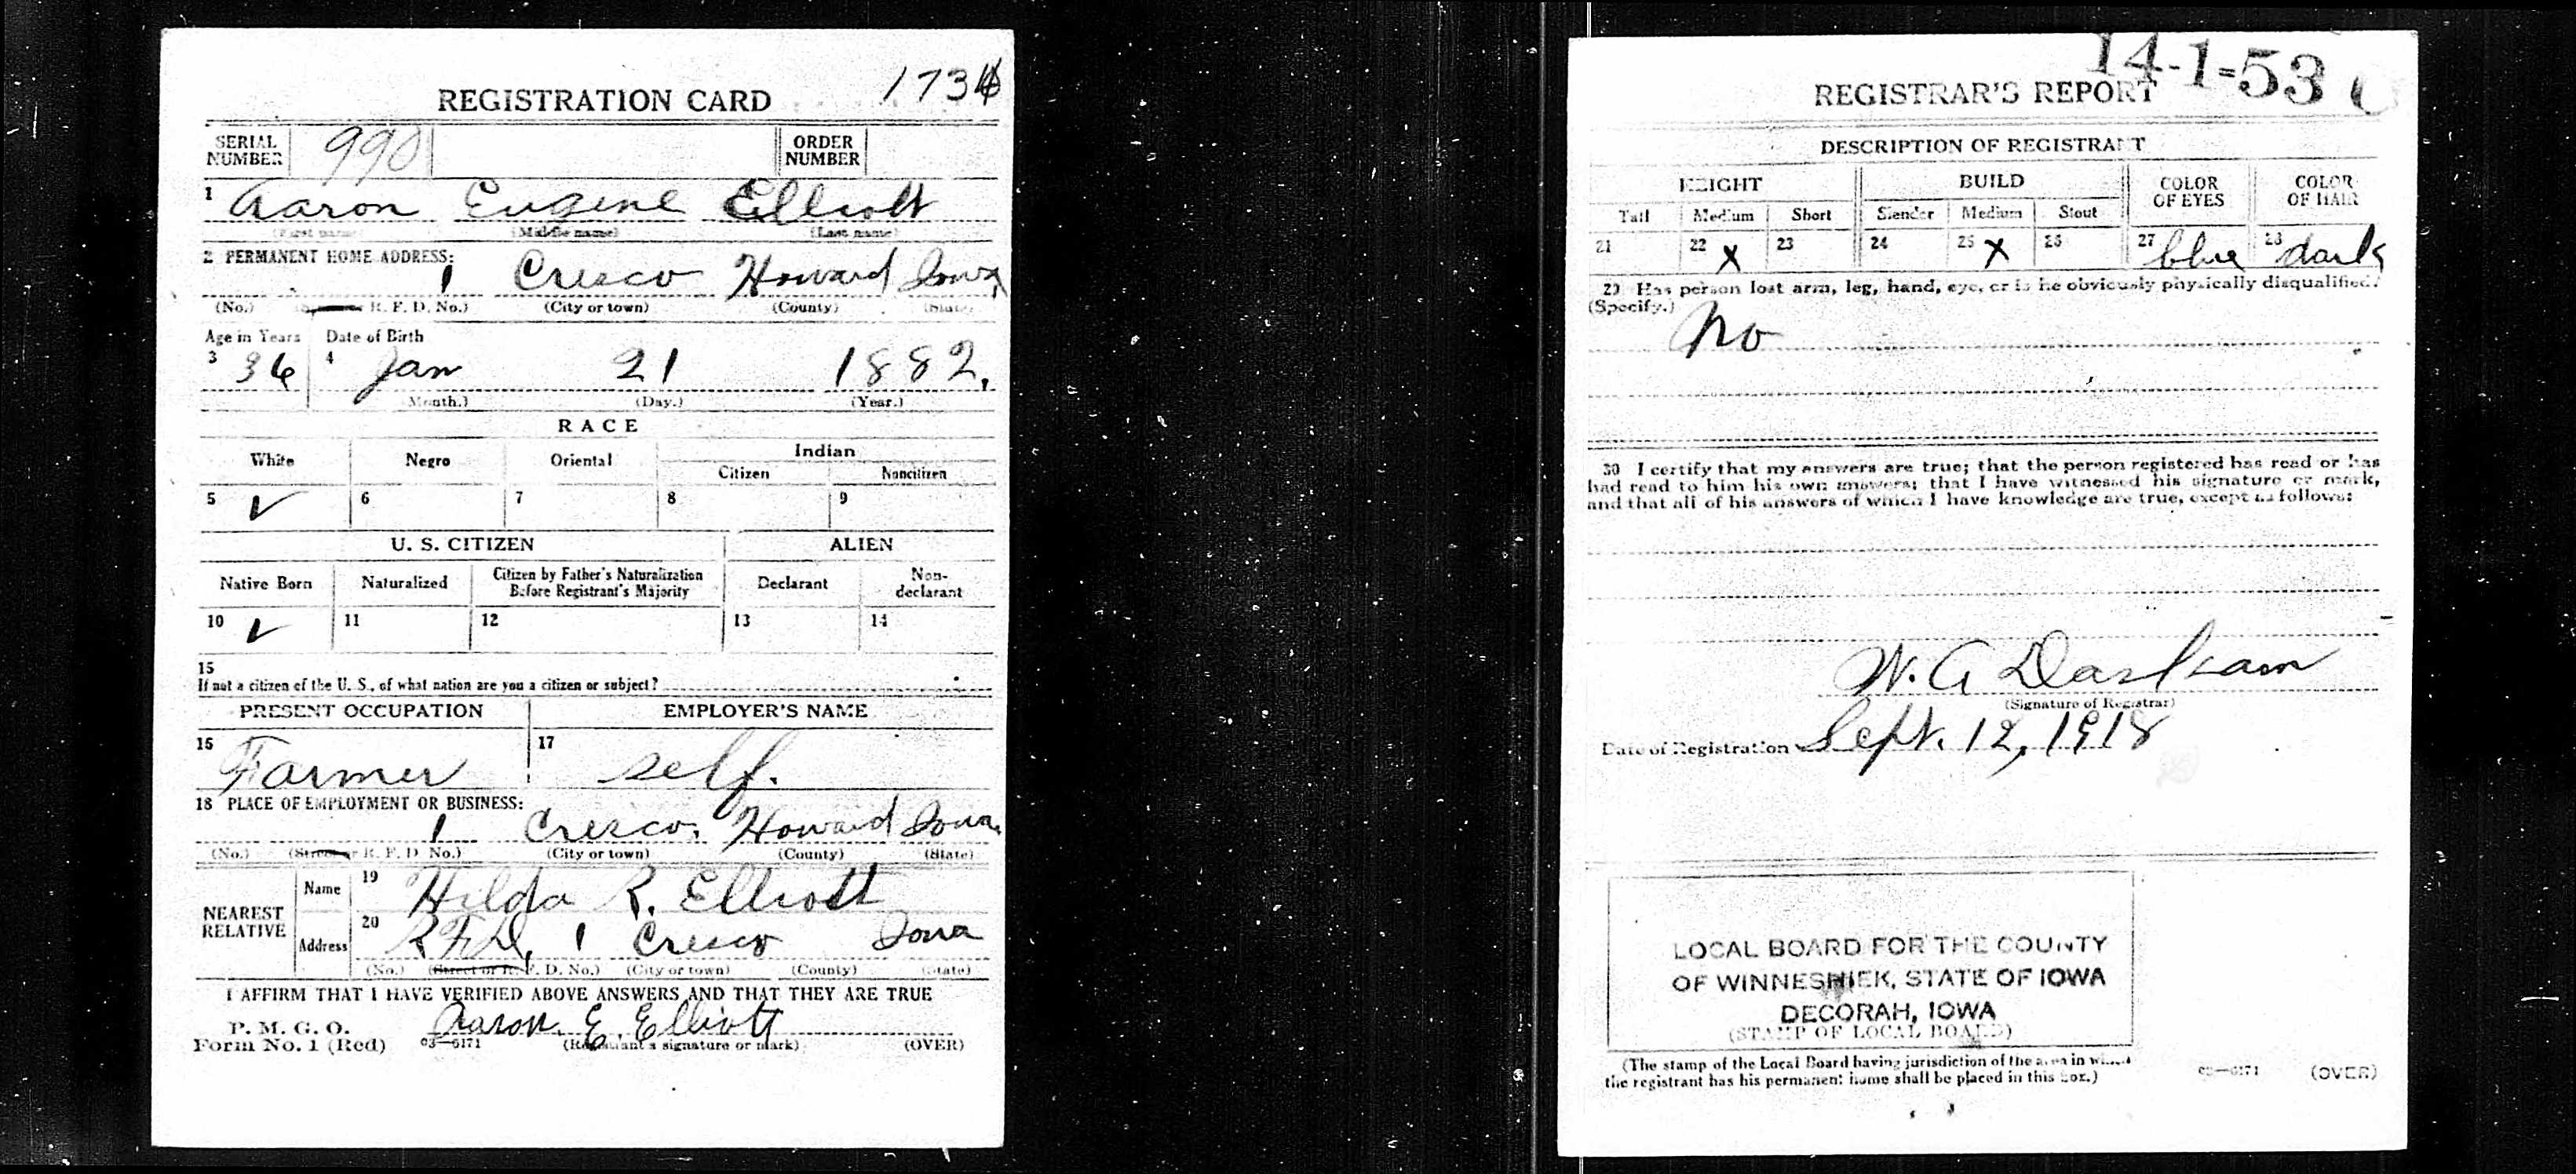 REGISTRATION CARD
SERIAL NUMBER 990 ORDER NUMBER
1 Aaron Eugene Elliott
(First name) (Middle name) (Last name)
2 PERMANENT HOME ADDRESS:
1 Cresco Howard Iowa
(No.) R. F. D. No.) (City or town) (County) (State)
Age in Years Date of Birth
3 36 4 Jan 21 1882.
(Month.) (Day.) (Year.)
RACE
White Negro Oriental Indian
Citizen Noncitizen
5 ✓ 6 7 8 9
U. S. CITIZEN ALIEN
Native Born Naturalized Citizen by Father's Naturalization Before Registrant's Majority Declarant Non-declarant
10 ✓ 11 12 13 14
15
If not a citizen of the U. S., of what nation are you a citizen or subject?
PRESENT OCCUPATION EMPLOYER'S NAME
16 Farmer 17 self.
18 PLACE OF EMPLOYMENT OR BUSINESS:
1 Cresco, Howard Iowa.
(No.) (Street or R. F. D. No.) (City or town) (County) (State)
NEAREST RELATIVE
Name 19 Hilda R. Elliott
Address 20 RFD, 1 Cresco Iowa
(No.) (Street or R. F. D. No.) (City or town) (County) (State)
I AFFIRM THAT I HAVE VERIFIED ABOVE ANSWERS AND THAT THEY ARE TRUE
P. M. G. O.
Form No. 1 (Red) 03—6171 Aaron. E. Elliott
(Registrant's signature or mark) (OVER)
14-1-53
REGISTRAR'S REPORT
DESCRIPTION OF REGISTRANT
HEIGHT BUILD COLOR OF EYES COLOR OF HAIR
Tall Medium Short Slender Medium Stout
21 22 X 23 24 25 X 26 27 blue 28 dark
29 Has person lost arm, leg, hand, eye, or is he obviously physically disqualified?
(Specify.) No
30 I certify that my answers are true; that the person registered has read or has
had read to him his own answers; that I have witnessed his signature or mark,
and that all of his answers of which I have knowledge are true, except as follows:
W. A
(Signature of Registrar)
Date of Registration Sept. 12, 1918
LOCAL BOARD FOR THE COUNTY
OF WINNESHIEK, STATE OF IOWA
DECORAH, IOWA
(STAMP OF LOCAL BOARD)
(The stamp of the Local Board having jurisdiction of the area in which
the registrant has his permanent home shall be placed in this box.)
03—6171 (OVER)